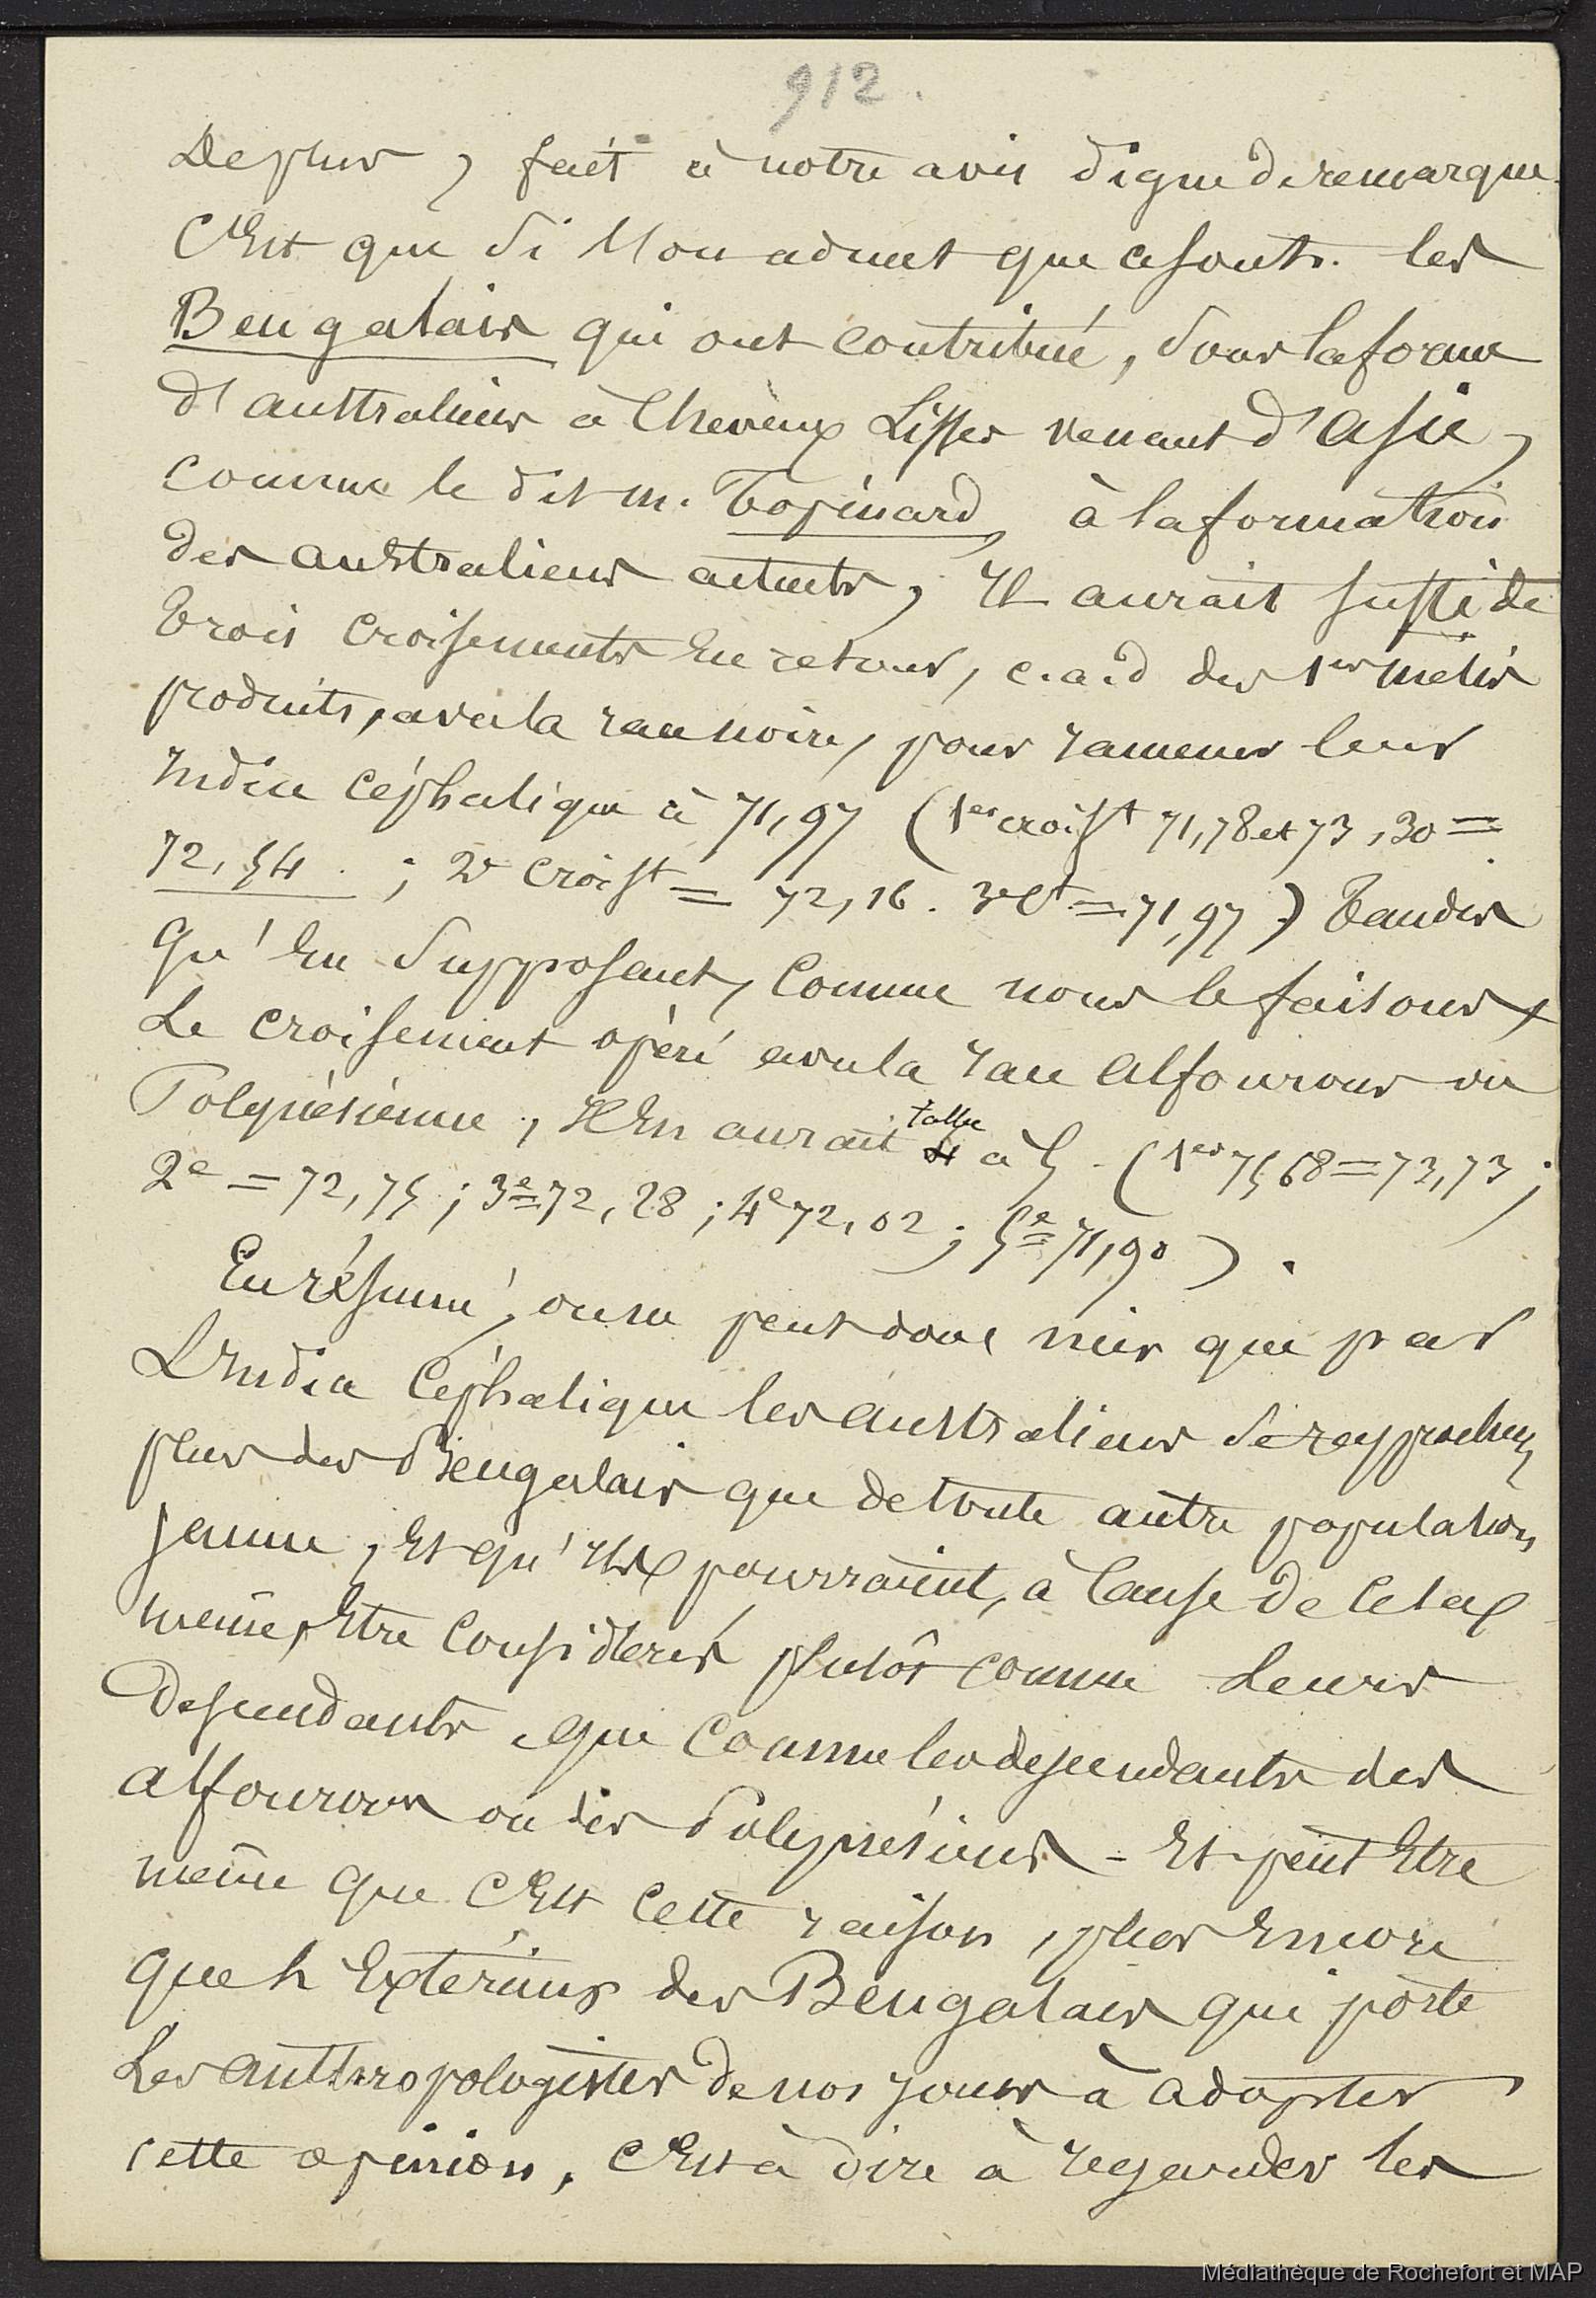 912.
De plus, fait à notre avis digne de remarque
C'Est que si l'on admet que ce sont les
Bengalais qui ont contribué, sous la forme
d'australiens à Cheveux Lisses venant d'asie,
comme le dit m. Topinard, à la formation
des australiens actuels, Il aurait suffi de
trois croisements En retour, c.a.d des 1ers métis
produits, avec la race noire, pour ramener leur
Indice céphalique à 71,97 (1er croist 71,78 et 73,30 =
72,54 ; 2e croist = 72,16. 3e Ct = 71,97) tandis
qu'En supposant, Comme nous le faisons,
Le croisement opéré avec la race alfourous ou
Polynésienne, Il En aurait fallu 4 à 5. (1er 75,68 = 73,73 ;
2e = 72,75 ; 3e = 72,28 ; 4e 72,02 ; 5e = 71,90).
En résumé, on ne peut donc nier que par
L'Indice Céphalique les australiens se rapprochent
plus des Bengalais que de toute autre population
jaune, Et qu'Ils pourraient, à Cause de Cela
même, Etre Considérés plutôt comme Leurs
descendants, que Comme les descendants des
alfourous ou des Polynésiens - Et peut Etre
même que C'Est Cette raison, plus Encore
que l'Extérieur des Bengalais qui porte
Les anthropologistes de nos jours à adopter
cette opinion, C'Est à dire à regarder les
Médiathèque de Rochefort et MAP